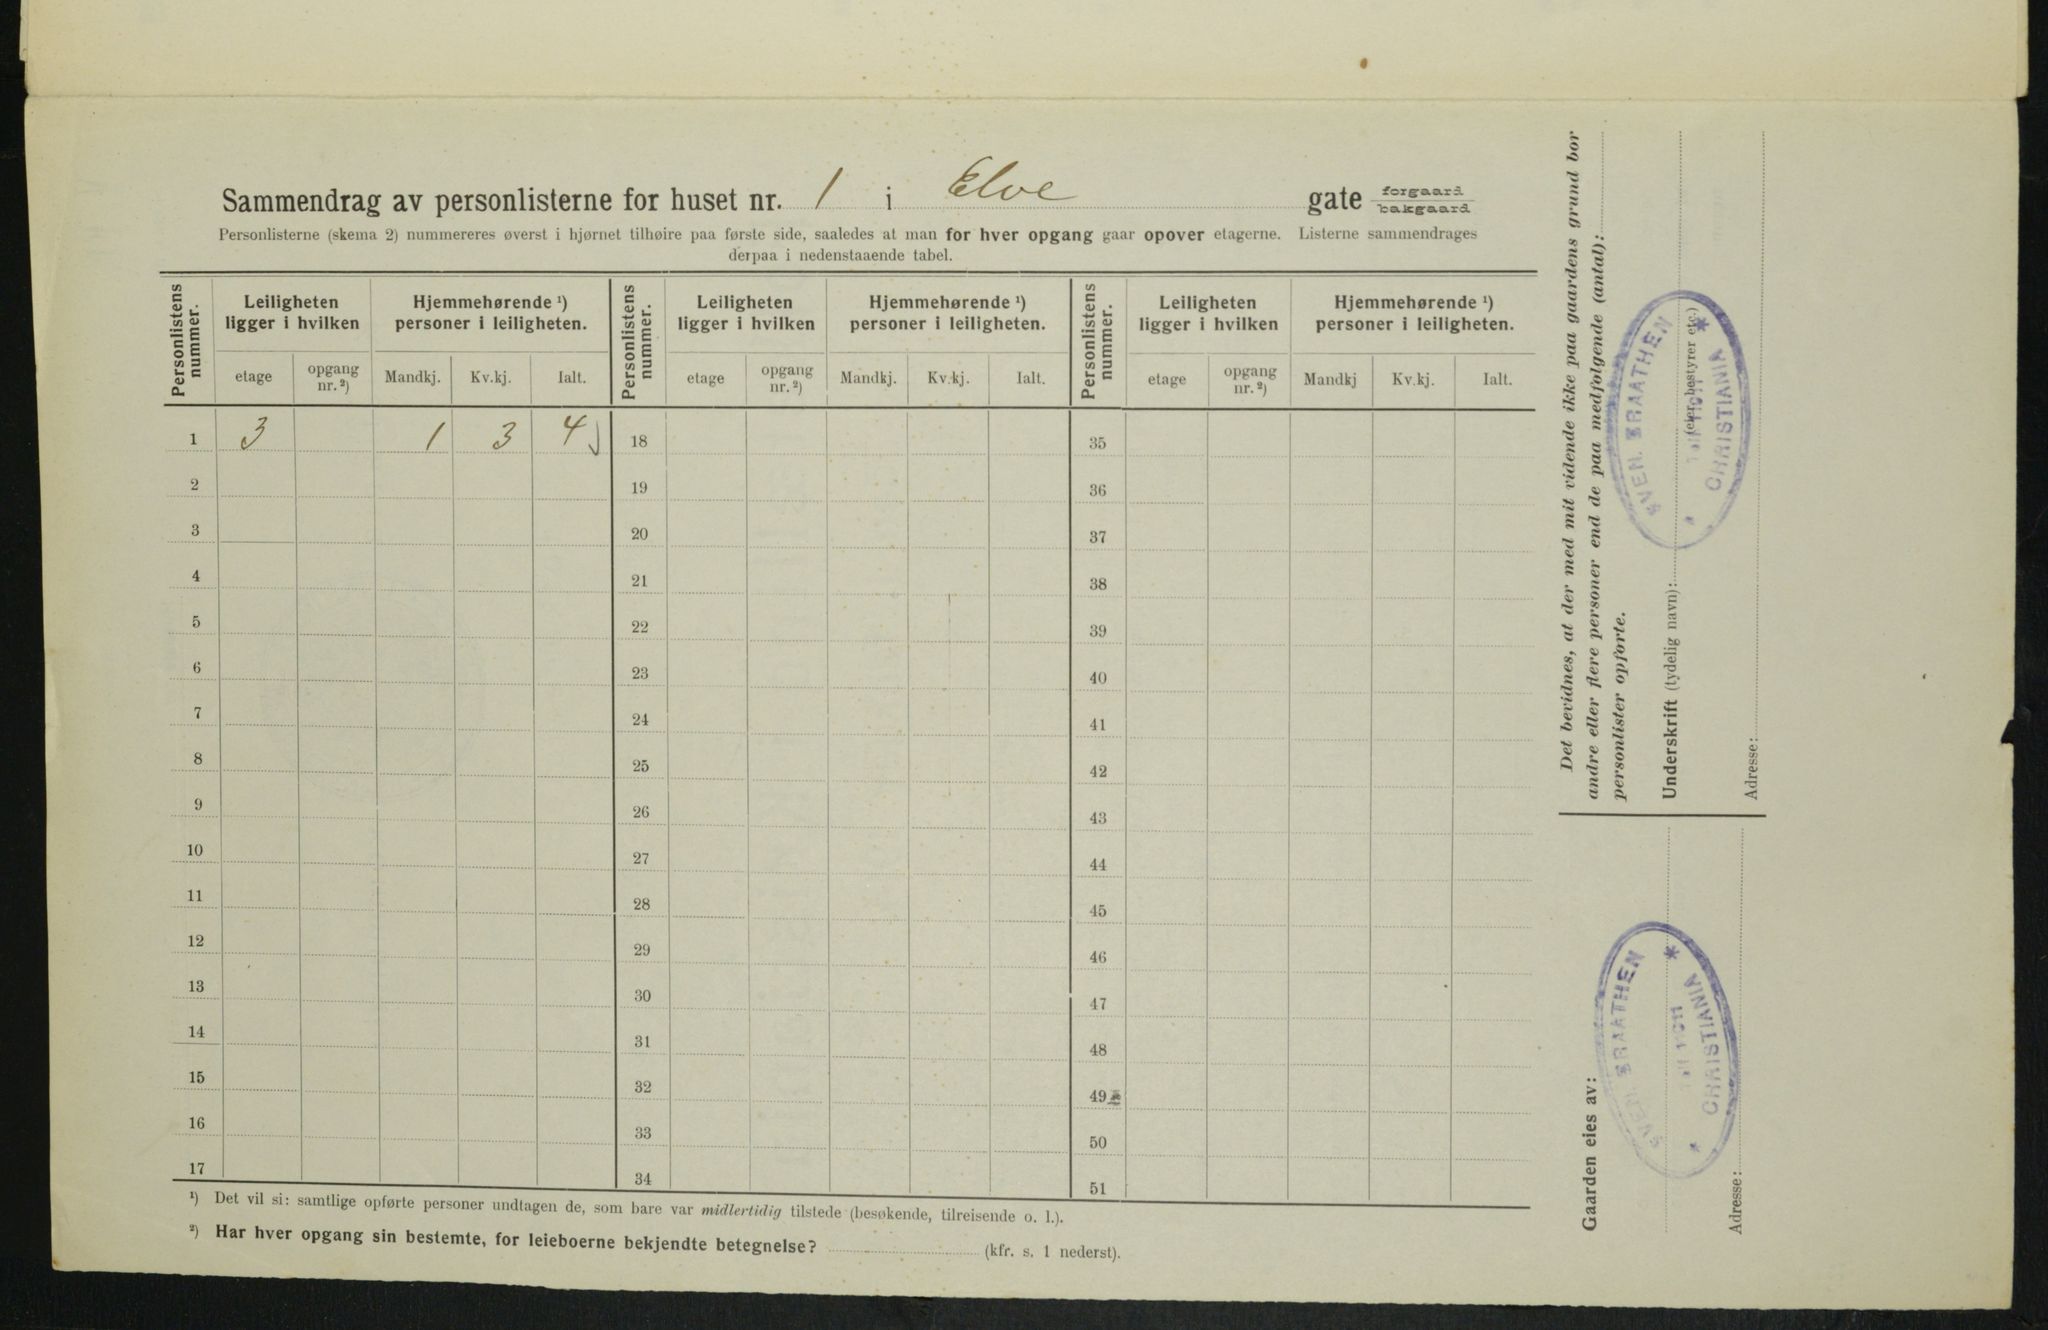 Sammendrag av personlisterne for huset nr. 1 i Elve gate forgaard bakgaard
Personlisterne (skema 2) nummereres øverst i hjørnet tilhøire paa første side, saaledes at man for hver opgang gaar opover etagerne. Listerne sammendrages
derpaa i nedenstaaende tabel.
Personlistens nummer. Leiligheten ligger i hvilken Hjemmehørende ¹) personer i leiligheten. Personlistens nummer. Leiligheten ligger i hvilken Hjemmehørende ¹) personer i leiligheten. Personlistens nummer. Leiligheten ligger i hvilken Hjemmehørende ¹) personer i leiligheten.
etage opgang nr. ²) Mandkj. Kv.kj. Ialt. etage opgang nr. ²) Mandkj. Kv.kj. Ialt. etage opgang nr. ²) Mandkj Kv.kj. Ialt.
1 3 1 3 4 18 35
2 19 36
3 20 37
4 21 38
5 22 39
6 23 40
7 24 41
8 25 42
9 26 43
10 27 44
11 28 45
12 29 46
13 30 47
14 31 48
15 32 49
16 33 50
17 34 51
¹) Det vil si: samtlige opførte personer undtagen de, som bare var midlertidig tilstede (besøkende, tilreisende o. l.).
²) Har hver opgang sin bestemte, for leieboerne bekjendte betegnelse? (kfr. s. 1 nederst).
Det bevidnes, at der med mit vidende ikke paa gaardens grund bor
andre eller flere personer end de paa medfølgende (antal):
personlister opførte.
Underskrift (tydelig navn):
(eier, bestyrer etc.)
Adresse:
SVEN. BRAATHEN
CHRISTIANIA
Gaarden eies av:
Adresse:
SVEN. BRAATHEN
CHRISTIANIA